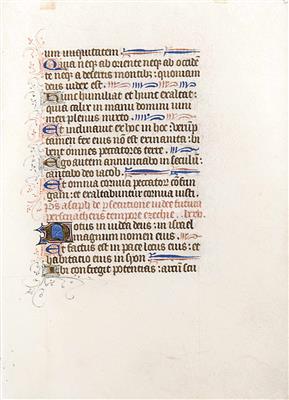 um iniquitatem
Quia neq; ab oriente neq; ab occidē
te neq; a desertis montib; quoniam
deus iudex est.
Hunc humiliat et hunc exaltat:
quia calix in manu domini uini
meri plenus mixto.
Et inclinauit ex hoc in hoc: uerūp
tamen fex eius nō est exinanita: bi
bent omnes peccatores terre.
Ego autem annunciabo in seculū:
cantabo deo iacob.
Et omnia cornua peccatorū cōfrin
gam: et exaltabuntur cornua iusti.
ps asaph de
Notus in iudea deus: in israel
magnum nomen eius.
Et factus est in pace locus eius: et
habitacio eius in syon
Ibi confregit potencias: arcū scu